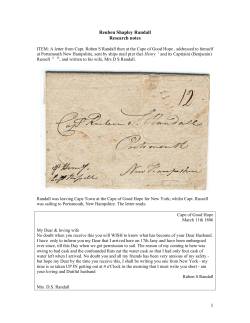 Reuben Shapley Randall
Research notes
ITEM: A letter from Capt. Ruben S Randall then at the Cape of Good Hope , addressed to himself
at Portsmouth New Hampshire, sent by ships mail pr ship Henry and its Captain (Benjamin)
Russell and written to his wife, Mrs D S Randall.
12
Capt Reuben S. Randall
Portsmouth
New Hampshire
Randall was leaving Cape Town at the Cape of Good Hope for New York; whilst Capt. Russell
was sailing to Portsmouth, New Hampshire. The letter reads
Cape of Good Hope
March 11th 1806
My Dear & loving wife
No doubt when you receive this you will WISH to know what has become of your Dear Husband.
I have only to inform you my Dear that I arrived here on 17th
ever since, till this Day when we got permission to sail. The reason of my coming in here was
owing to bad cask and the confounded Rats eat the water cask so that I had only four cask of
water left when I arrived. No doubt you and all my friends has been very anxious of my safety -
hope my Dear by the time you receive this, I shall be writing you one from New York - my
time is so taken UP IN getting out at 4 o'Clock in the morning that I must write you short - am
your loving and Dutiful husband
Ruben S Randall
Mrs. D.S. Randall
1